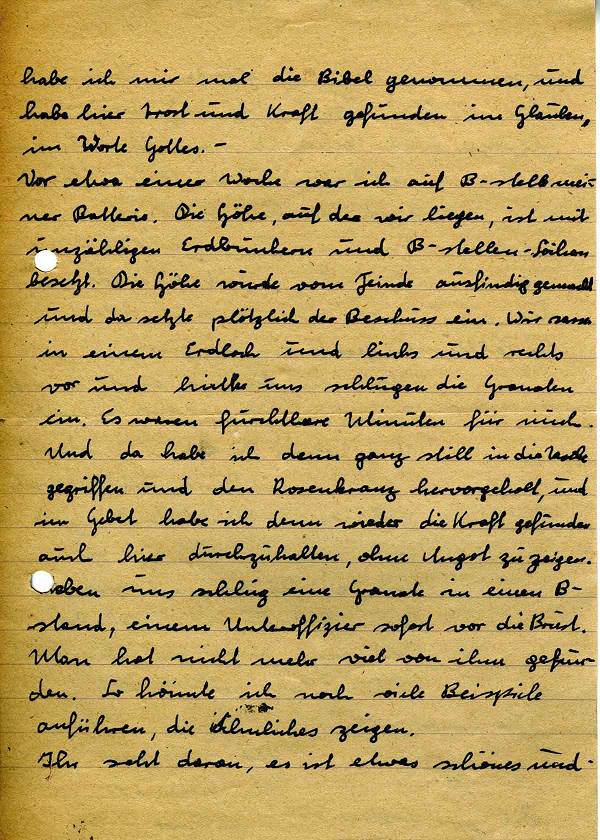 habe ich mir mal die Bibel genommen, und
habe hier Trost und Kraft gefunden im Glauben,
im Worte Gottes. –
Vor etwa einer Woche war ich auf B-stelle mei-
ner Batterie. Die Höhe, auf der wir liegen, ist mit
unzähligen Erdbunkern und B-stellen
besetzt. Die Höhe wurde vom Feinde ausfindig gemacht
und da setzte plötzlich der Beschuss ein. Wir sassen
in einem Erdloch und links und rechts
vor und hinter uns schlugen die Granaten
ein. Es waren furchtbare Minuten für mich.
Und da habe ich dann ganz still in die Tasche
gegriffen und den Rosenkranz hervorgeholt, und
im Gebet habe ich dann wieder die Kraft gefunden
auch hier durchzuhalten, ohne Angst zu zeigen.
Neben uns schlug eine Granate in einen B-
stand, einem Unteroffizier sofort vor die Brust.
Man hat nicht mehr viel von ihm gefun-
den. So könnte ich noch viele Beispiele
anführen, die ähnliches zeigen.
Ihr seht daran, es ist etwas schönes und